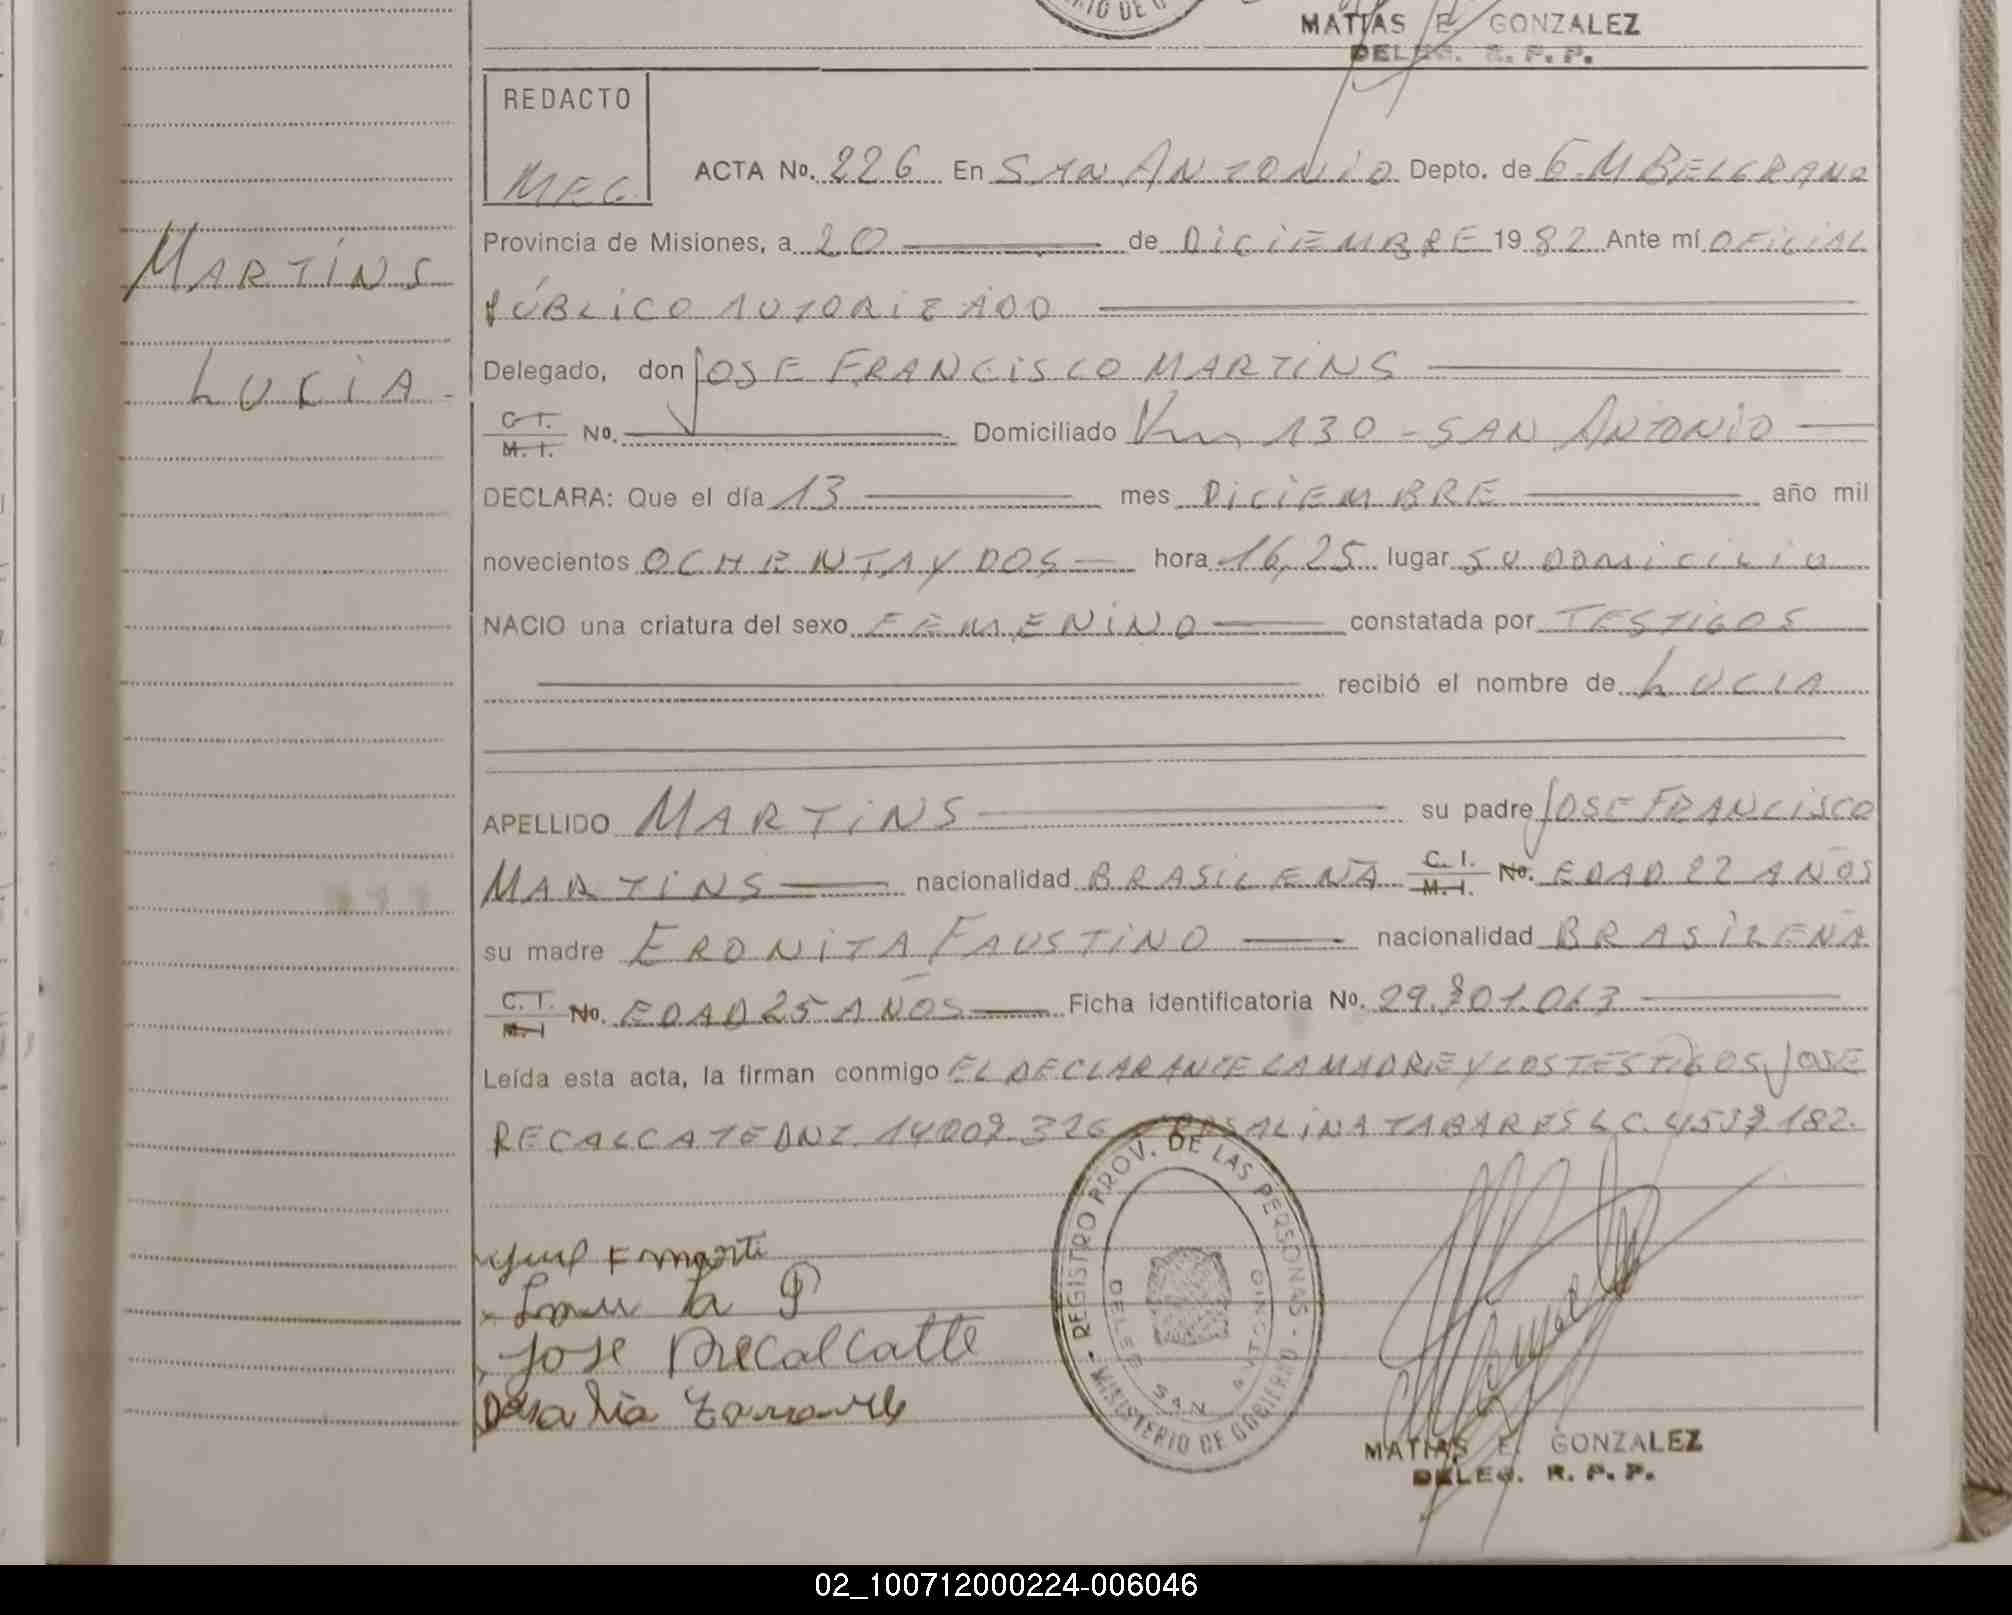 RIO DE G
MATIAS E. GONZALEZ
DELEG. R. P. P.
REDACTO
MEG
ACTA No. 226 En SAN ANTONIO Depto. de G. M BELGRANO
Provincia de Misiones, a 20 de DICIEMBRE 1982 Ante mí OFICIAL
PÚBLICO AUTORIZADO
Delegado, don JOSE FRANCISCO MARTINS
C. I. M. I. No. Domiciliado Km 130 - SAN ANTONIO
DECLARA: Que el día 13 mes DICIEMBRE año mil
novecientos OCHENTA Y DOS hora 16,25 lugar SU DOMICILIO
NACIO una criatura del sexo FEMENINO constatada por TESTIGOS
recibió el nombre de LUCIA
APELLIDO MARTINS su padre JOSE FRANCISCO
MARTINS nacionalidad BRASILEÑA C. I. M. I. No. EDAD 22 AÑOS
su madre ERONITA FAUSTINO nacionalidad BRASILEÑA
C. I. M. I No. EDAD 25 AÑOS Ficha identificatoria No. 29.801.063
Leída esta acta, la firman conmigo EL DECLARANTE LA MADRE Y LOS TESTIGOS JOSE
RECALCATE DNI. 14009.326 ROSALINA TABARES L C. 4539.182.
MARTINS
LUCIA
Jose Recalcatte
- REGISTRO PROV. DE LAS PERSONAS - MINISTERIO DE GOBIERNO
DELEG SAN ANTONIO
MATIAS E. GONZALEZ
DELEG. R. P. P.
02_100712000224-006046